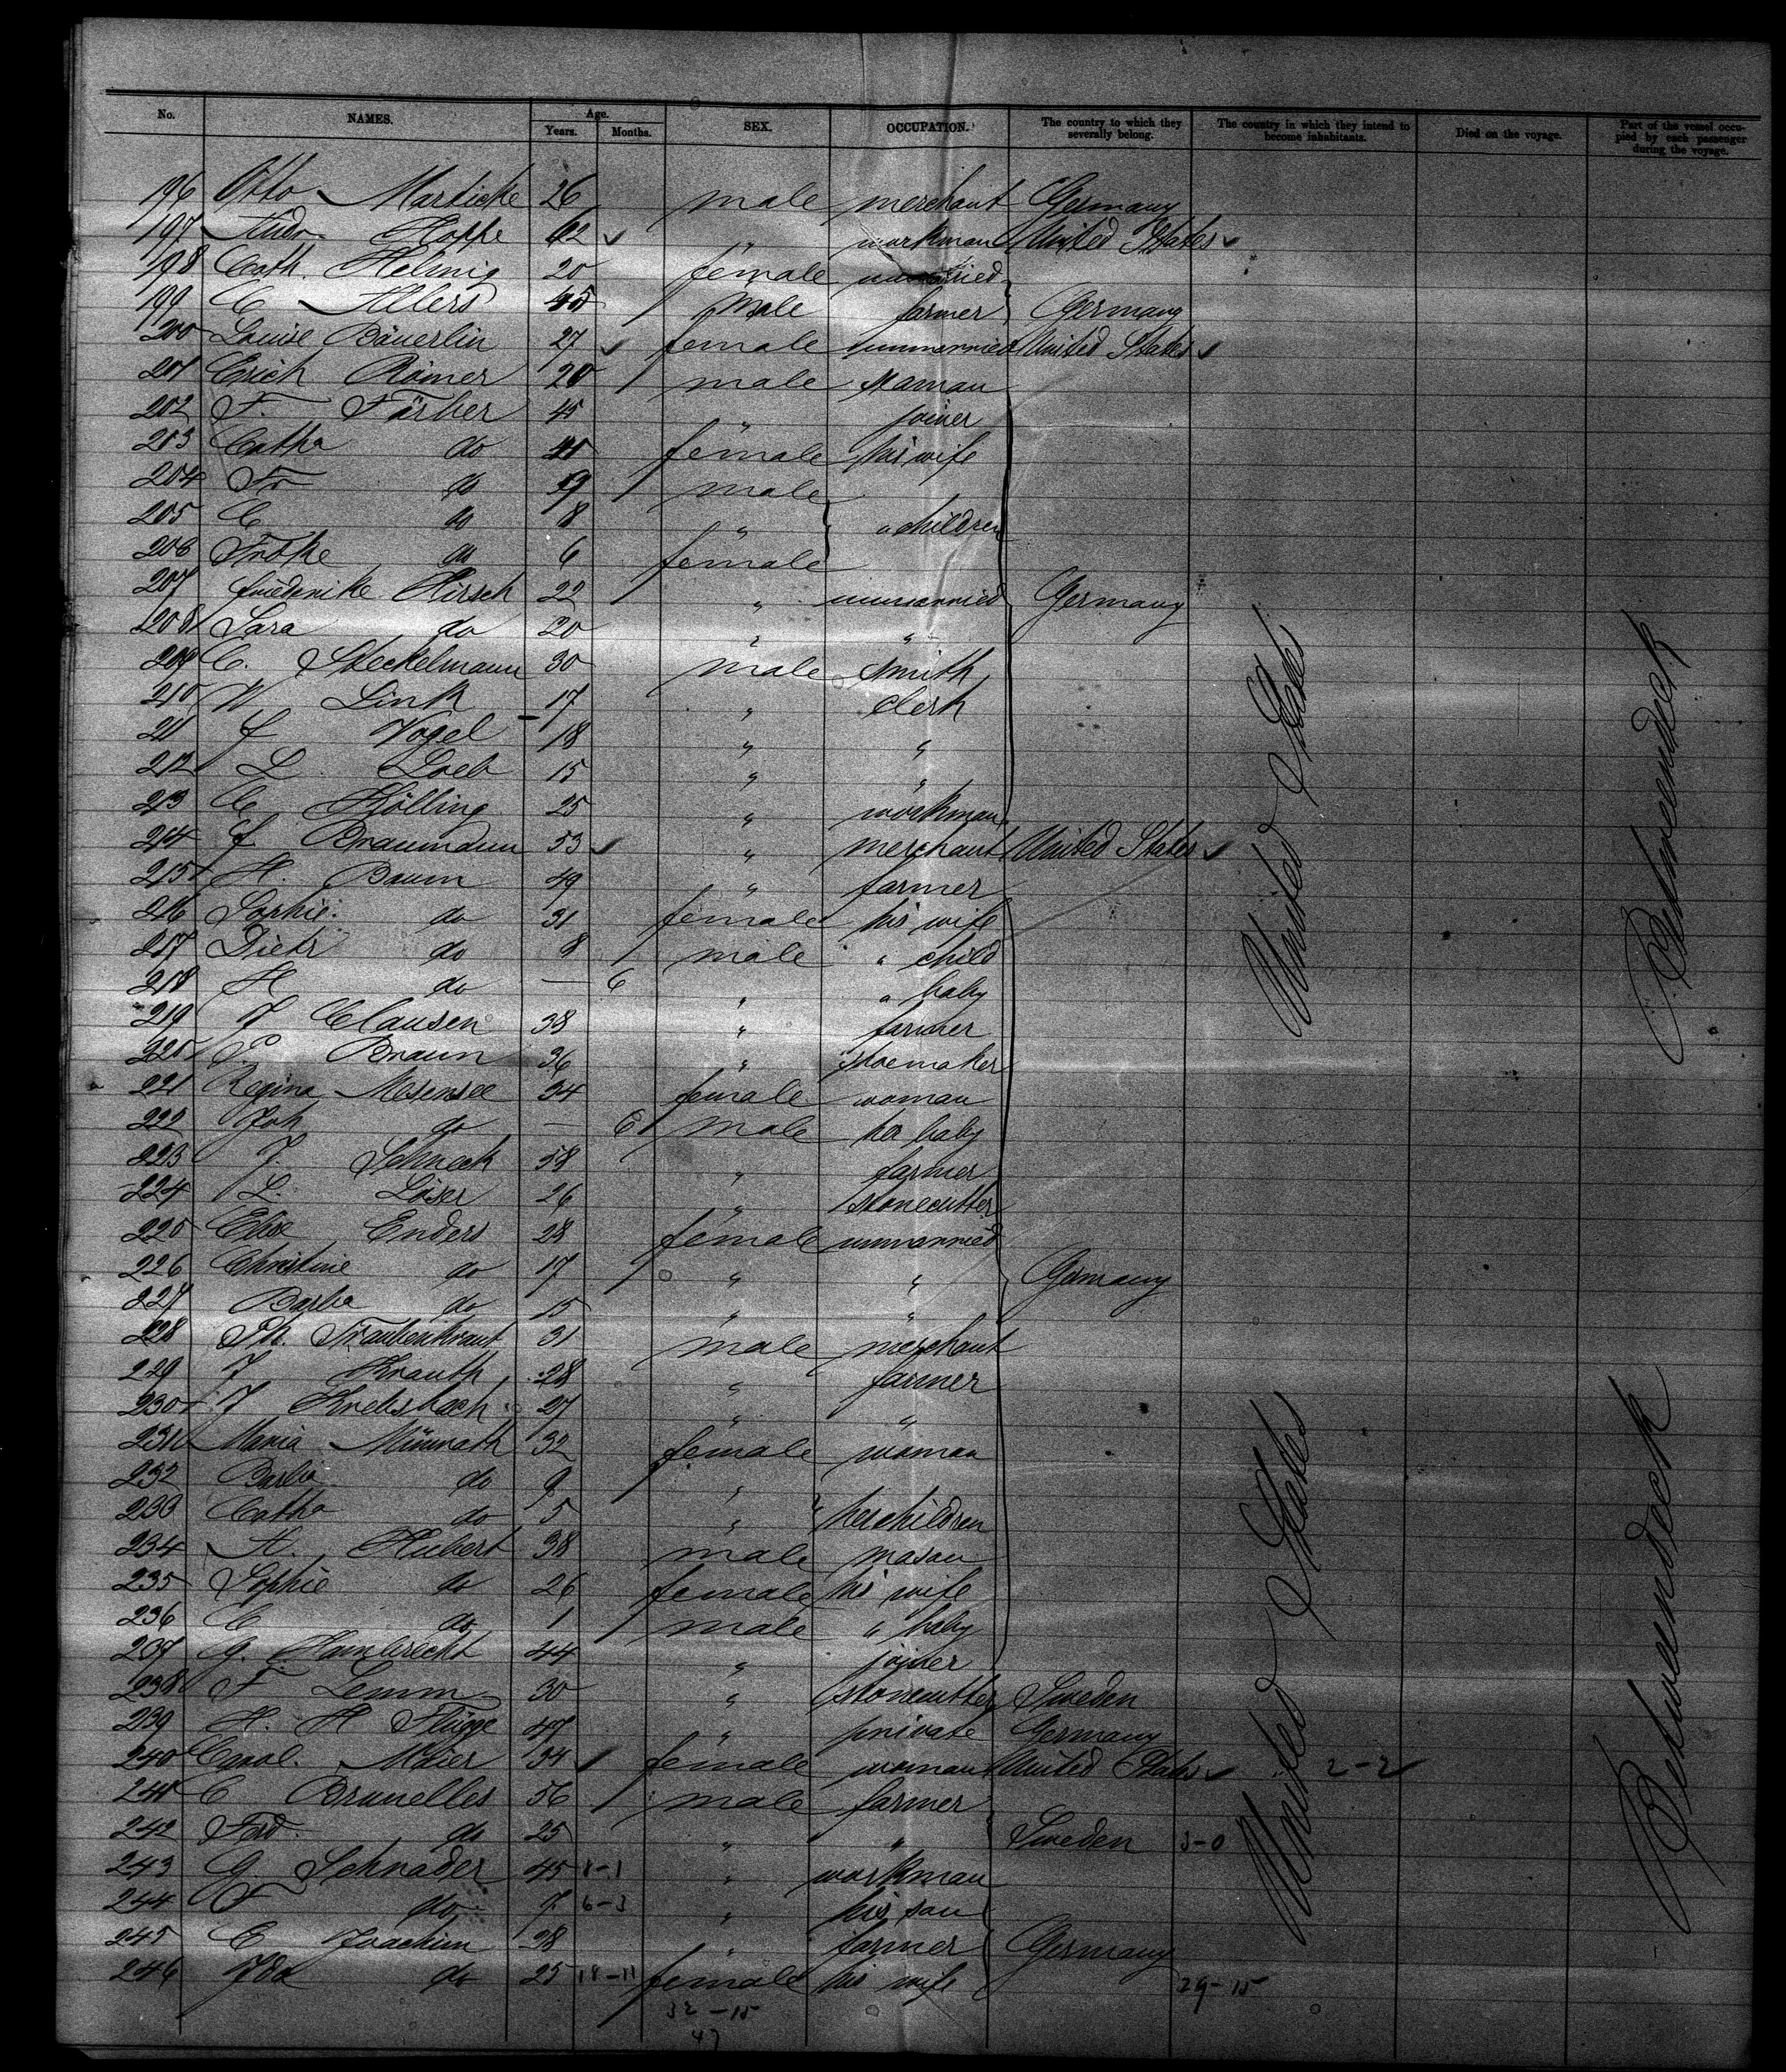 No. NAMES. Age. Years. Months. SEX. OCCUPATION. The country to which they severally belong. The country in which they intend to become inhabitants. Died on the voyage. Part of the vessel occupied by each passenger during the voyage.
196 Otto Marticke 26 male merchant Germany
197 Hoppe 42 " workman United States
198 Cath. Helmig 20 female unmarried
199 C Allers 45 male farmer Germany
200 Louise Bäuerlin 27 female unmarried United States
201 Erich Römer 20 male seaman
202 F. Färber 45 " joiner
203 Catha do 41 female his wife
204 Fr do 9 male
205 C do 8 " " children
206 do 6 female
207 Friederike Hirsch 22 " unmarried Germany
208 Sara do 20 " "
209 C. Steckelmann 30 male smith
210 W Link 17 " clerk
211 Vogel 18 " "
212 L Loeb 15 " "
213 C Kölling 25 " workman
214 53 " merchant United States
215 H. Baum 49 " farmer
216 Sophie do 31 female his wife
217 Dietr do 8 male " child
218 H do — 6 " " baby
219 J Clausen 38 " farmer
220 P. Braun 36 " shoemaker
221 Regina Mesensee 34 female woman
222 Joh do — 6 male her baby
223 J. Schneck 58 " farmer
224 L. Löser 26 " stonecutter
225 Elise Enders 28 female unmarried
226 Christine do 17 " " Germany
227 Barba do 15 " "
228 Ph. Traubenkraut 31 male merchant
229 J Krauth 28 " farmer
230 J Krebsbach 27 " "
231 Maria Münrath 32 female woman
232 Barba do 9 "
233 Catha do 5 " her children
234 A. Hubert 38 male mason
235 Sophie do 26 female his wife
236 C do 1 male " baby
237 G. Hambrecht 44 " joiner
238 F Lemm 30 " stonecutter Sweden
239 H. H Flügge 47 " private Germany
240 Carol. Maier 34 female woman United States 2-2
241 C Brunelles 56 male farmer
242 Ferd. do 25 " " Sweden 3-0
243 G Schnader 45 1-1 " workman
244 F do 7 6-3 " his son
245 C Joachim 28 " farmer Germany
246 Ida do 25 18-11 female his wife 29-15
32-15
47
United States
Betweendeck
United States
Betweendeck